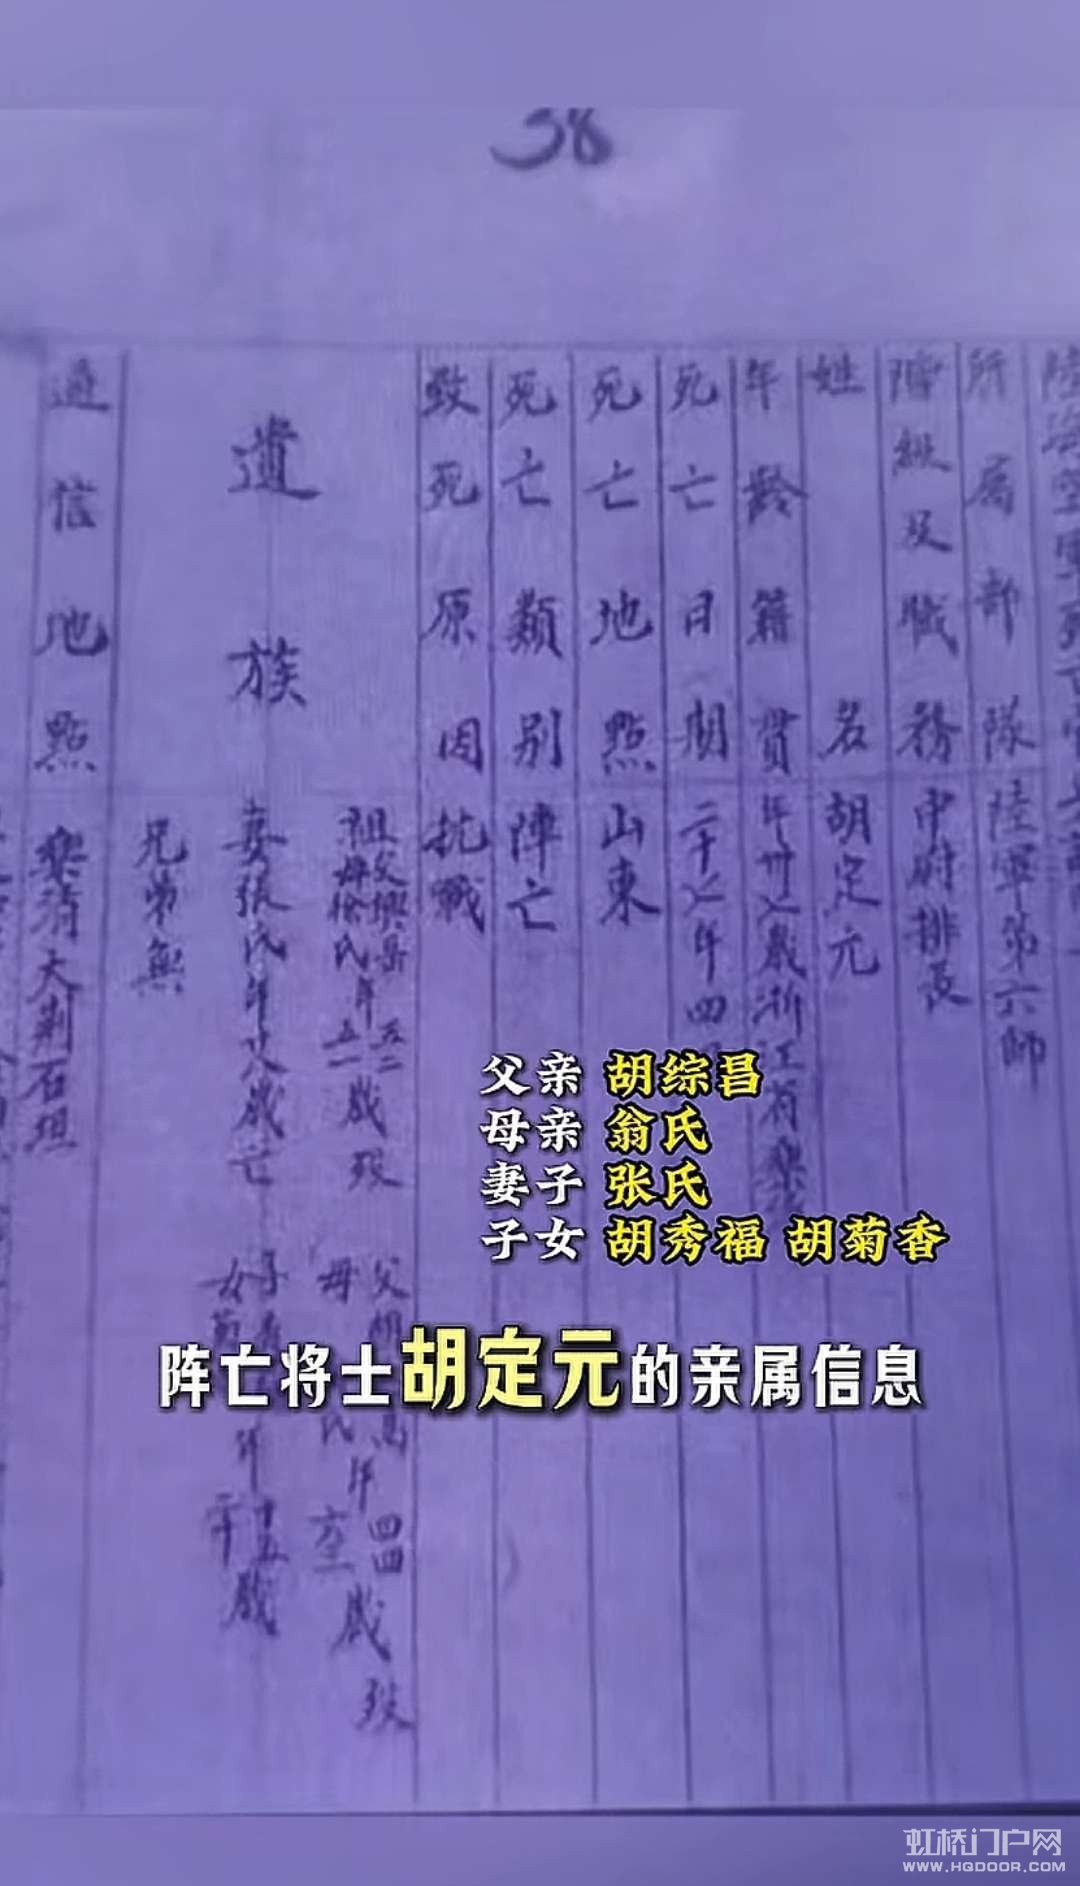 38
所屬部隊 陸軍第六師
階級及職務 中尉排長
姓名 胡定元
年齡籍貫 年卅七歲浙江省樂
死亡日期 二十七年四
死亡地點 山東
死亡類别 陣亡
致死原因 抗戰
遺族
祖父興岳年五二歲歿
祖母徐氏年五一歲歿
父胡
四四歲歿
母
氏年六
妻張氏年廿八歲亡
子
年十五歲
女菊
年十
兄弟無
通信地點 樂清大荆石坦
父亲 胡综昌
母亲 翁氏
妻子 张氏
子女 胡秀福 胡菊香
阵亡将士胡定元的亲属信息
虹桥门户网
WWW.HQDOOR.COM